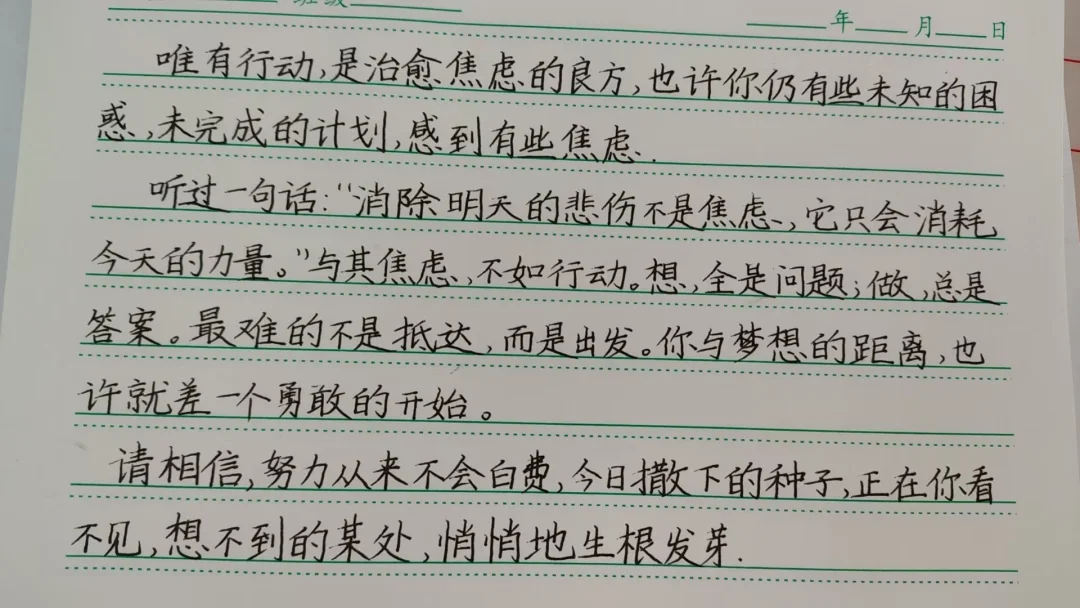 班级
年 月 日
唯有行动,是治愈焦虑的良方,也许你仍有些未知的困
惑,未完成的计划,感到有些焦虑.
听过一句话:“消除明天的悲伤不是焦虑,它只会消耗
今天的力量。”与其焦虑,不如行动。想,全是问题;做,总是
答案。最难的不是抵达,而是出发。你与梦想的距离,也
许就差一个勇敢的开始。
请相信,努力从来不会白费,今日撒下的种子,正在你看
不见,想不到的某处,悄悄地生根发芽.